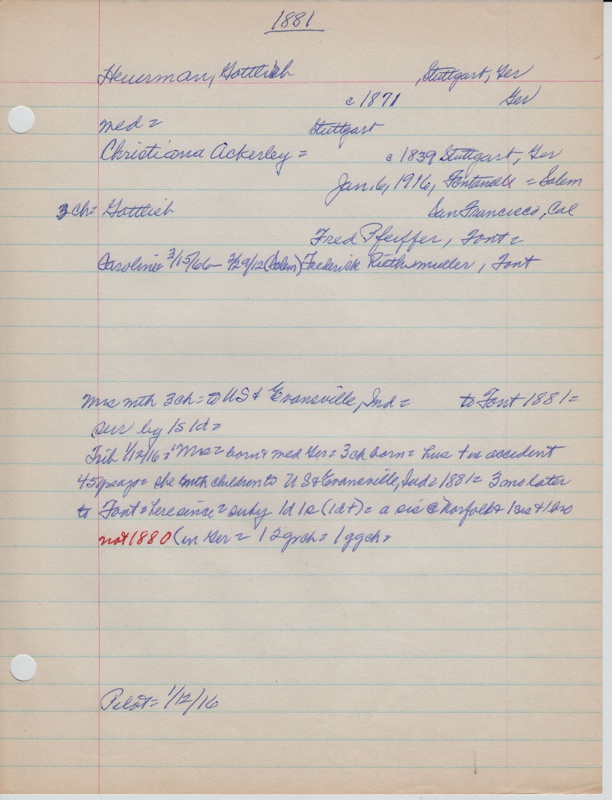 1881
Heuerman, Gottlieb , Stuttgart, Ger
c 1871 Ger
med = Stuttgart
Christiana Ackerley = c 1839 Stuttgart, Ger
Jan 6, 1916, Fontanelle = Salem
3 ch = Gottlieb San Francisco, Cal
Fred Pfeiffer, Font =
Caroline 3/15/66 - 3/29/12 (Salem) Frederick Riethmuller, Font
Mrs mth 3 ch = to US & Evansville, Ind = to Font 1881 =
sur by 1s 1d =
Trib 1/12/16 = Mrs = born & med Ger = 3 ch born = hus + in accident
45 yr ago = she mth children to US & Evansville, Ind = 1881 = 3 mo later
to Font = here since = surby 1d 1s (1d+) = a sis @ Norfolk & 1 sis & 1 bro
not 1880 (in Ger = 12 grch = 1 ggch =
Pilot = 1/12/16